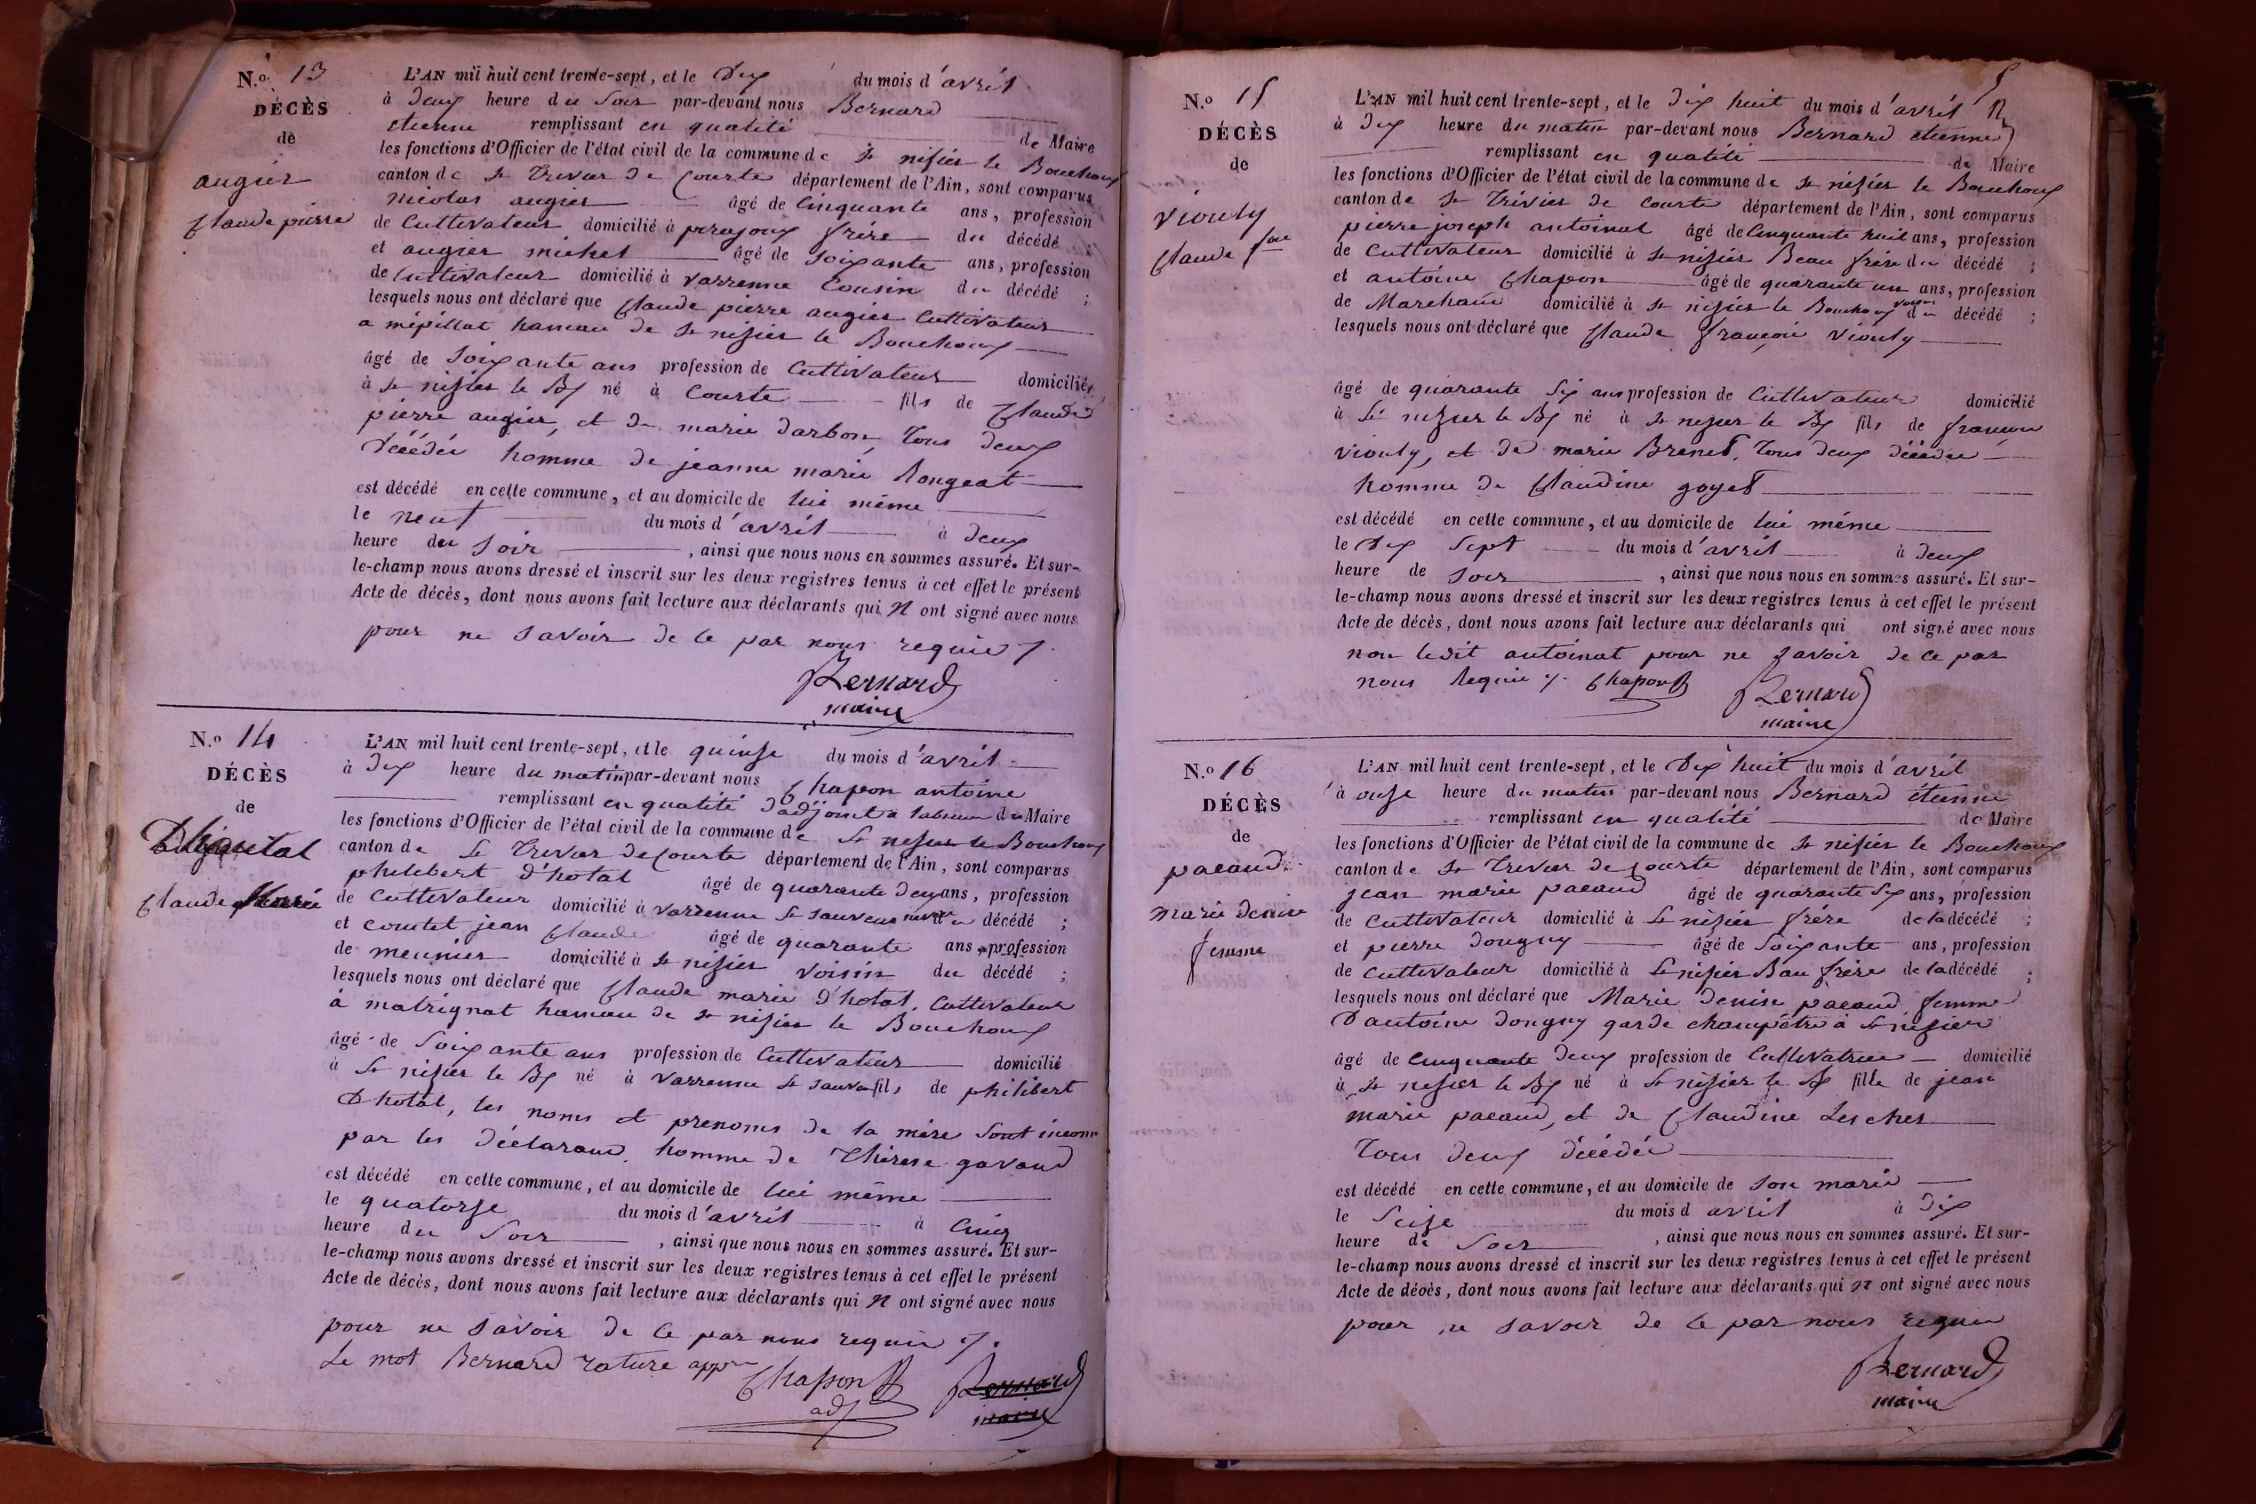 N.o 13
DÉCÈS
de
augier
Claude pierre
L'AN mil huit cent trente-sept, et le Dix du mois d'avril
à Deux heure du Soir par-devant nous Bernard
etienne remplissant en qualité de Maire
les fonctions d'Officier de l'état civil de la commune de St nisier le Bouchoux
canton de St Trivier de Courte département de l'Ain, sont comparus
nicolas augier âgé de Cinquante ans, profession
de Cultivateur domicilié à frère du décédé
et augier michel âgé de Soixante ans, profession
de Cultivateur domicilié à Varenne Cousin du décédé ;
lesquels nous ont déclaré que Claude pierre augier Cultivateur
a mépillat hameau de St nisier le Bouchoux
âgé de Soixante ans profession de Cultivateur domicilié
à St nisier le Bx né à Courte fils de Claude
pierre augier, et de marie darbon, Tous deux
Décédés homme de jeanne marie Rongeat
est décédé en cette commune, et au domicile de lui même
le neuf du mois d'avril à Deux
heure du Soir , ainsi que nous nous en sommes assuré. Et sur-
le-champ nous avons dressé et inscrit sur les deux registres tenus à cet effet le présent
Acte de décès, dont nous avons fait lecture aux déclarants qui N ont signé avec nous
pour ne savoir de ce par nous requis /.
Bernard
maire
N.o 14
DÉCÈS
de
Claude
L'AN mil huit cent trente-sept, et le quinze du mois d'avril
à Dix heure du matin par-devant nous Chapon antoine
remplissant en qualité D'adjoint a du Maire
les fonctions d'Officier de l'état civil de la commune de St nisier le Bouchoux
canton de St Trivier de Courte département de l'Ain, sont comparus
philibert d'hotal âgé de quarante deux ans, profession
de Cultivateur domicilié à Varenne St Sauveur neveu du décédé ;
et comtet jean Claude âgé de quarante ans, profession
de meunier domicilié à St nisier voisin du décédé ;
lesquels nous ont déclaré que Claude marie d'hotal, Cultivateur
à matrignat hameau de St nisier le Bouchoux
âgé de Soixante ans profession de Cultivateur domicilié
à St nisier le Bx né à Varenne St Sauveur fils de philibert
D'hotal, les noms et prenoms de la mère Sont inconn
par les déclarans, homme de Thérèse gavand
est décédé en cette commune, et au domicile de lui même
le quatorze du mois d'avril à Cinq
heure du Soir , ainsi que nous nous en sommes assuré. Et sur-
le-champ nous avons dressé et inscrit sur les deux registres tenus à cet effet le présent
Acte de décès, dont nous avons fait lecture aux déclarants qui N ont signé avec nous
pour ne savoir de ce par nous requis /.
Le mot Bernard rature appr
Chapon
adj
Bernard
maire
5
N.o 15
DÉCÈS
de
viouly
Claude fois
L'AN mil huit cent trente-sept, et le Dix huit du mois d'avril
à Dix heure du matin par-devant nous Bernard etienne
remplissant en qualité de Maire
les fonctions d'Officier de l'état civil de la commune de St nisier le Bouchoux
canton de St Trivier de Courte département de l'Ain, sont comparus
pierre joseph antoinat âgé de Cinquante huit ans, profession
de Cultivateur domicilié à St nisier Beau frère du décédé ;
et antoine Chapon âgé de quarante un ans, profession
de Marchand domicilié à St nisier le Bouchoux voisin du décédé ;
lesquels nous ont déclaré que Claude françois viouly
âgé de quarante Six ans profession de Cultivateur domicilié
à St nizier le Bx né à St nizier le Bx fils de françois
viouly, et de marie Brenet, Tous deux décédés
homme de Claudine goyet
est décédé en cette commune, et au domicile de lui même
le Dix Sept du mois d'avril à Deux
heure de Soir , ainsi que nous nous en sommes assuré. Et sur-
le-champ nous avons dressé et inscrit sur les deux registres tenus à cet effet le présent
Acte de décès, dont nous avons fait lecture aux déclarants qui ont signé avec nous
non ledit antoinat pour ne Savoir de ce par
nous Requis /. Chapon Bernard
maire
N.o 16
DÉCÈS
de
pacaud
marie denise
femme
L'AN mil huit cent trente-sept, et le Dix huit du mois d'avril
à onze heure du matin par-devant nous Bernard étienne
remplissant en qualité de Maire
les fonctions d'Officier de l'état civil de la commune de St nisier le Bouchoux
canton de St Trivier de Courte département de l'Ain, sont comparus
jean marie pacaud âgé de quarante Six ans, profession
de Cultivateur domicilié à St nisier frère de la décédé ;
et pierre dongny âgé de Soixante ans, profession
de Cultivateur domicilié à St nisier Bau frère de la décédé ;
lesquels nous ont déclaré que Marie denise pacaud femme
D'antoine dongny garde champêtre à St nisier
âgé de Cinquante deux profession de Cultivatrice domicilié
à St nisier le Bx né à St nisier le Bx fille de jean
marie pacaud, et de Claudine Lescher
Tous deux décédés
est décédé en cette commune, et au domicile de son marie
le Seize du mois d avril à Dix
heure de Soir , ainsi que nous nous en sommes assuré. Et sur-
le-champ nous avons dressé et inscrit sur les deux registres tenus à cet effet le présent
Acte de décès, dont nous avons fait lecture aux déclarants qui N ont signé avec nous
pour ne savoir de ce par nous requis
Bernard
maire